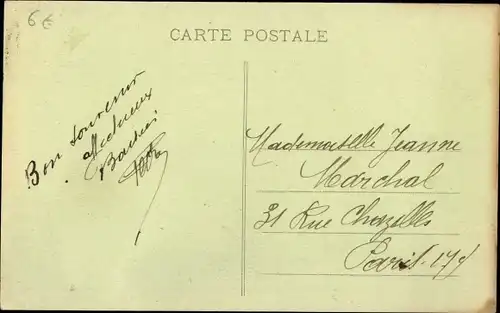 6 €
CARTE POSTALE
Bon souvenir
affectueux
Baisers
Mademoiselle Jeanne
Marchal
31 Rue Chazelles
Paris. 17e